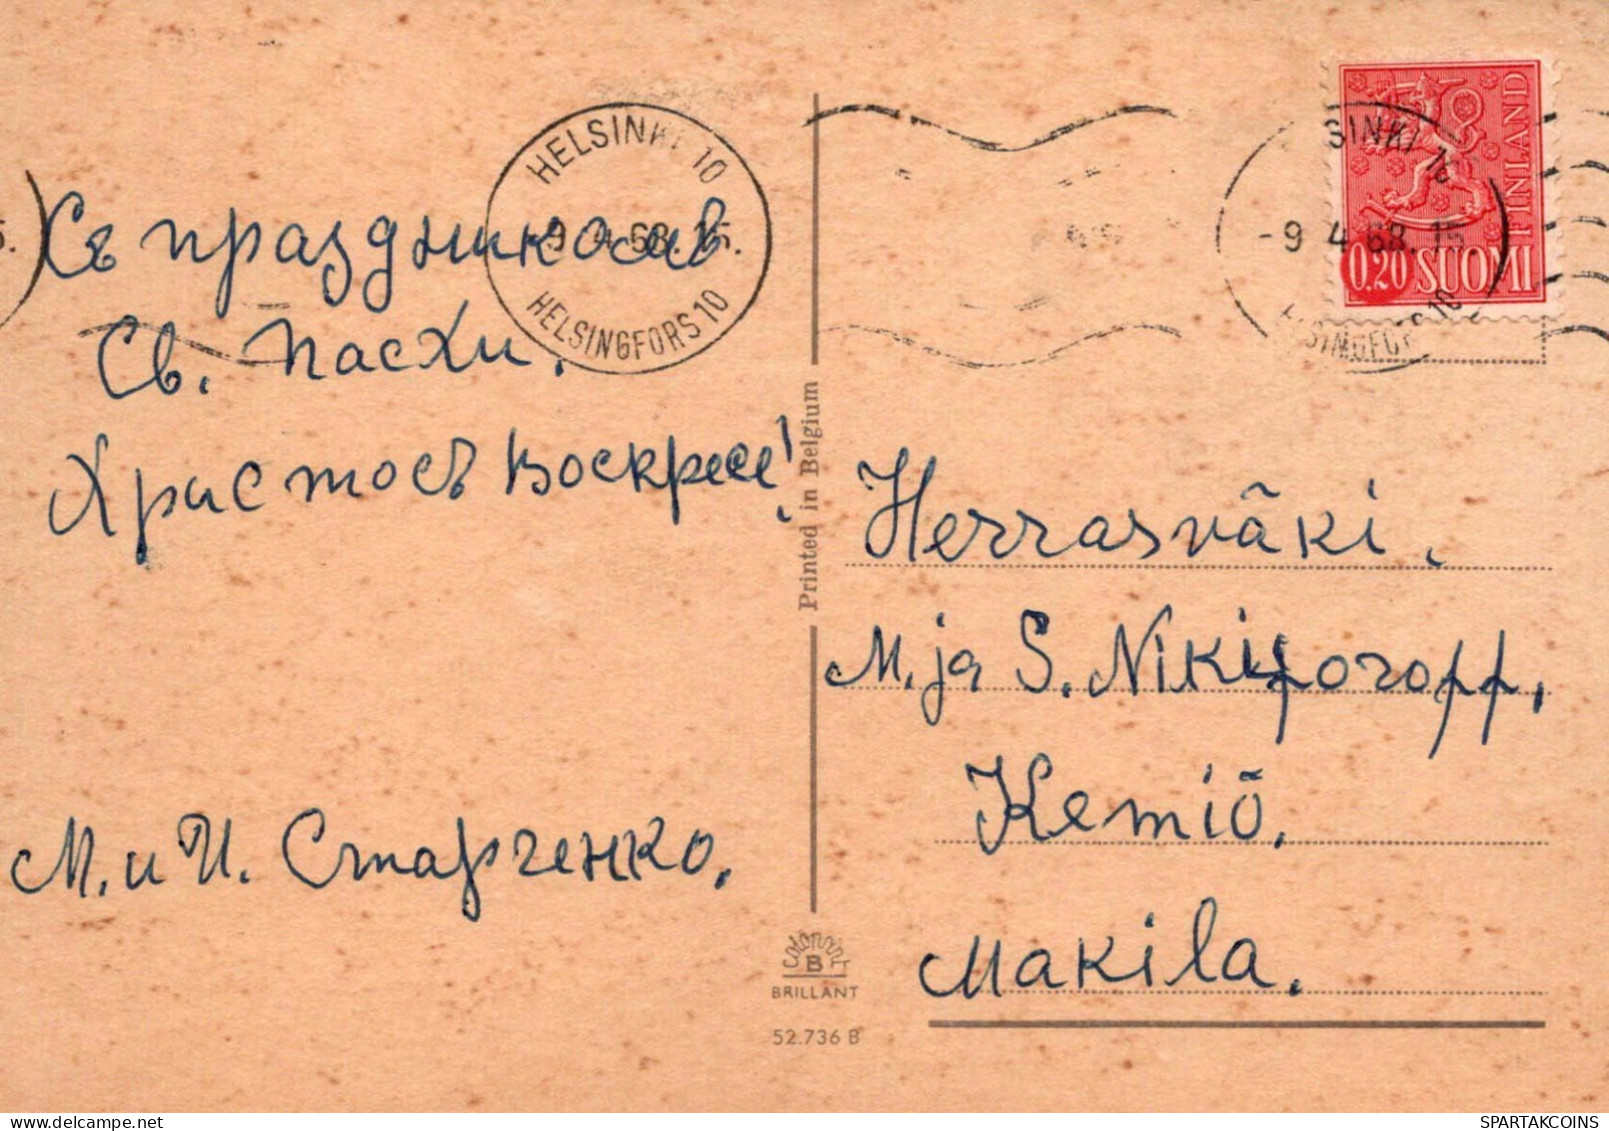 HELSINKI 10
-9.4.68.15.
HELSINGFORS 10
Съ праздникомъ
Св. Пасхи.
Христосъ Воскресе!
М. и И. Старченко.
Printed in Belgium
BRILLANT
52.736 B
SINKI 10
-9.4.68.15
FINLAND
0.20 SUOMI
Herrasväki.
M. ja S. Nikiforoff,
Kemiö.
Makila.
SPARTAKCOINS.COM